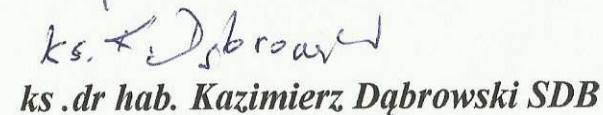 ks. K. Dąbrowski
ks .dr hab. Kazimierz Dąbrowski SDB